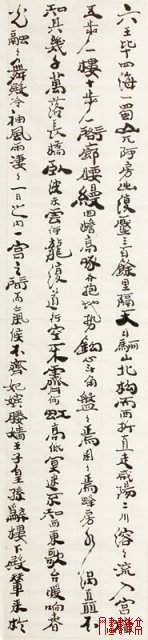 六王畢四海一蜀山兀阿房出覆壓三百餘里隔天日驪山北構而西折直走咸陽二川溶々流入宮
五步一樓十步一閣廊腰縵回簷高啄各抱地勢鈎心斗角盤々焉囷々焉蜂房水渦矗不
知其幾千萬落長橋臥波未雲何龍復道行空不霽何虹高低冥迷不知西東歌台暖響春
光融々舞殿冷袖風雨凄々一日之内一宮之間而氣候不齊妃嬪媵嬙王子皇孫辭樓下殿輦來於